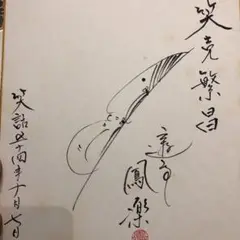 笑売繁昌
遊亭
鳳樂
笑話五十四年十月七日